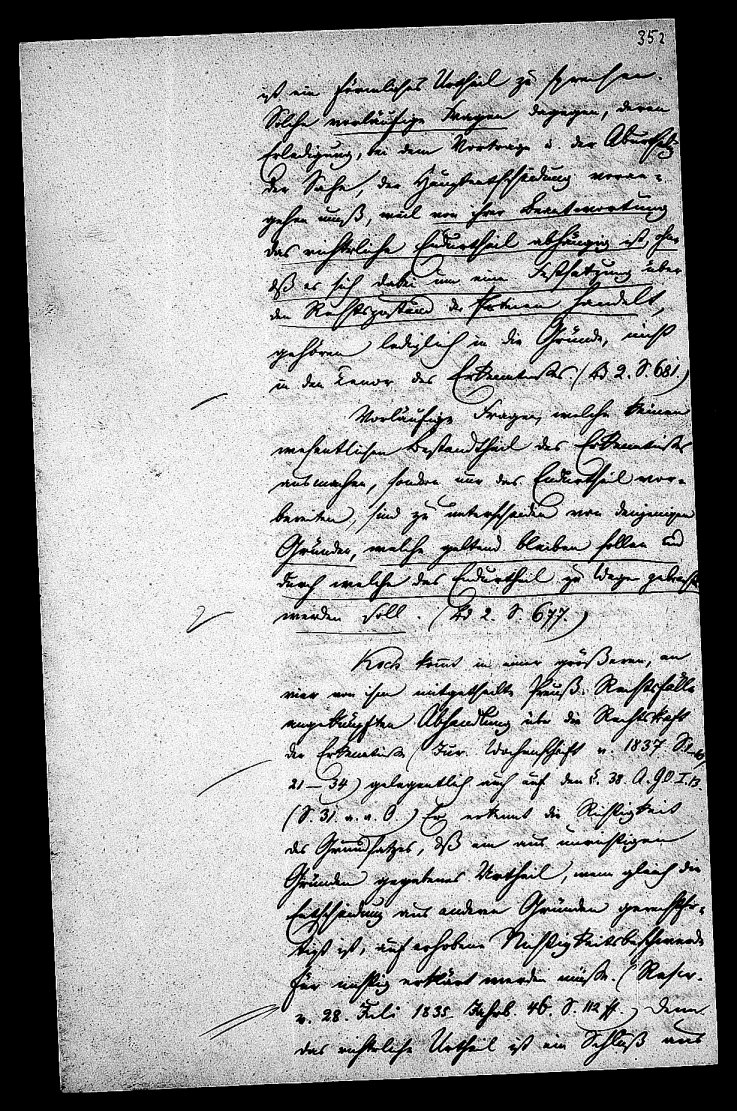 352
ist ein förmliches Urtheil zu sprechen.
Solche vorläufige Fragen dagegen, deren
Erledigung, bei dem Vortrage u. der
der Sache, der Hauptentscheidung voran-
gehen muß, weil von ihrer Beantwortung
das richterliche Endurtheil abhängig ist,
daß es sich dabei um eine Festsetzung über
den Rechtszustand der Parteien handelt,
gehören lediglich in die Gründe, nicht
in den Tenor des Erkenntnisses. (Bd 2. S. 681.)
Vorläufige Fragen, welche keinen
wesentlichen Bestandtheil des Erkenntnisses
ausmachen, sondern nur das Endurtheil vor-
bereiten, sind zu unterscheiden von denjenigen
Gründen, welche geltend bleiben sollen und
durch welche das Endurtheil zu Wege gebracht
werden soll. (Bd 2. S. 677.)
Koch kommt in einer größeren, an
von ihm mitgetheilte Preuß. Rechtsfälle
angeknüpften Abhandlung über die Rechtskraft
der Erkenntnisse (Jur. Wochenschrift v. 1837
21–34) gelegentlich auch auf den §. 38. A.G.O I. 13.
(S. 31. a. a. O.) Er erkennt die Richtigkeit
des Grundsatzes, daß ein aus unrichtigen
Gründen gegebenes Urtheil, wenn gleich die
Entscheidung aus andern Gründen gerechtfer-
tigt ist, auf erhobene Nichtigkeitsbeschwerde
für nichtig erklärt werden müsse. (Rescr.
v. 28. Juli 1835 Jahrb. 46. S. 112 ff.) Denn
das richterliche Urtheil ist ein Schluß aus